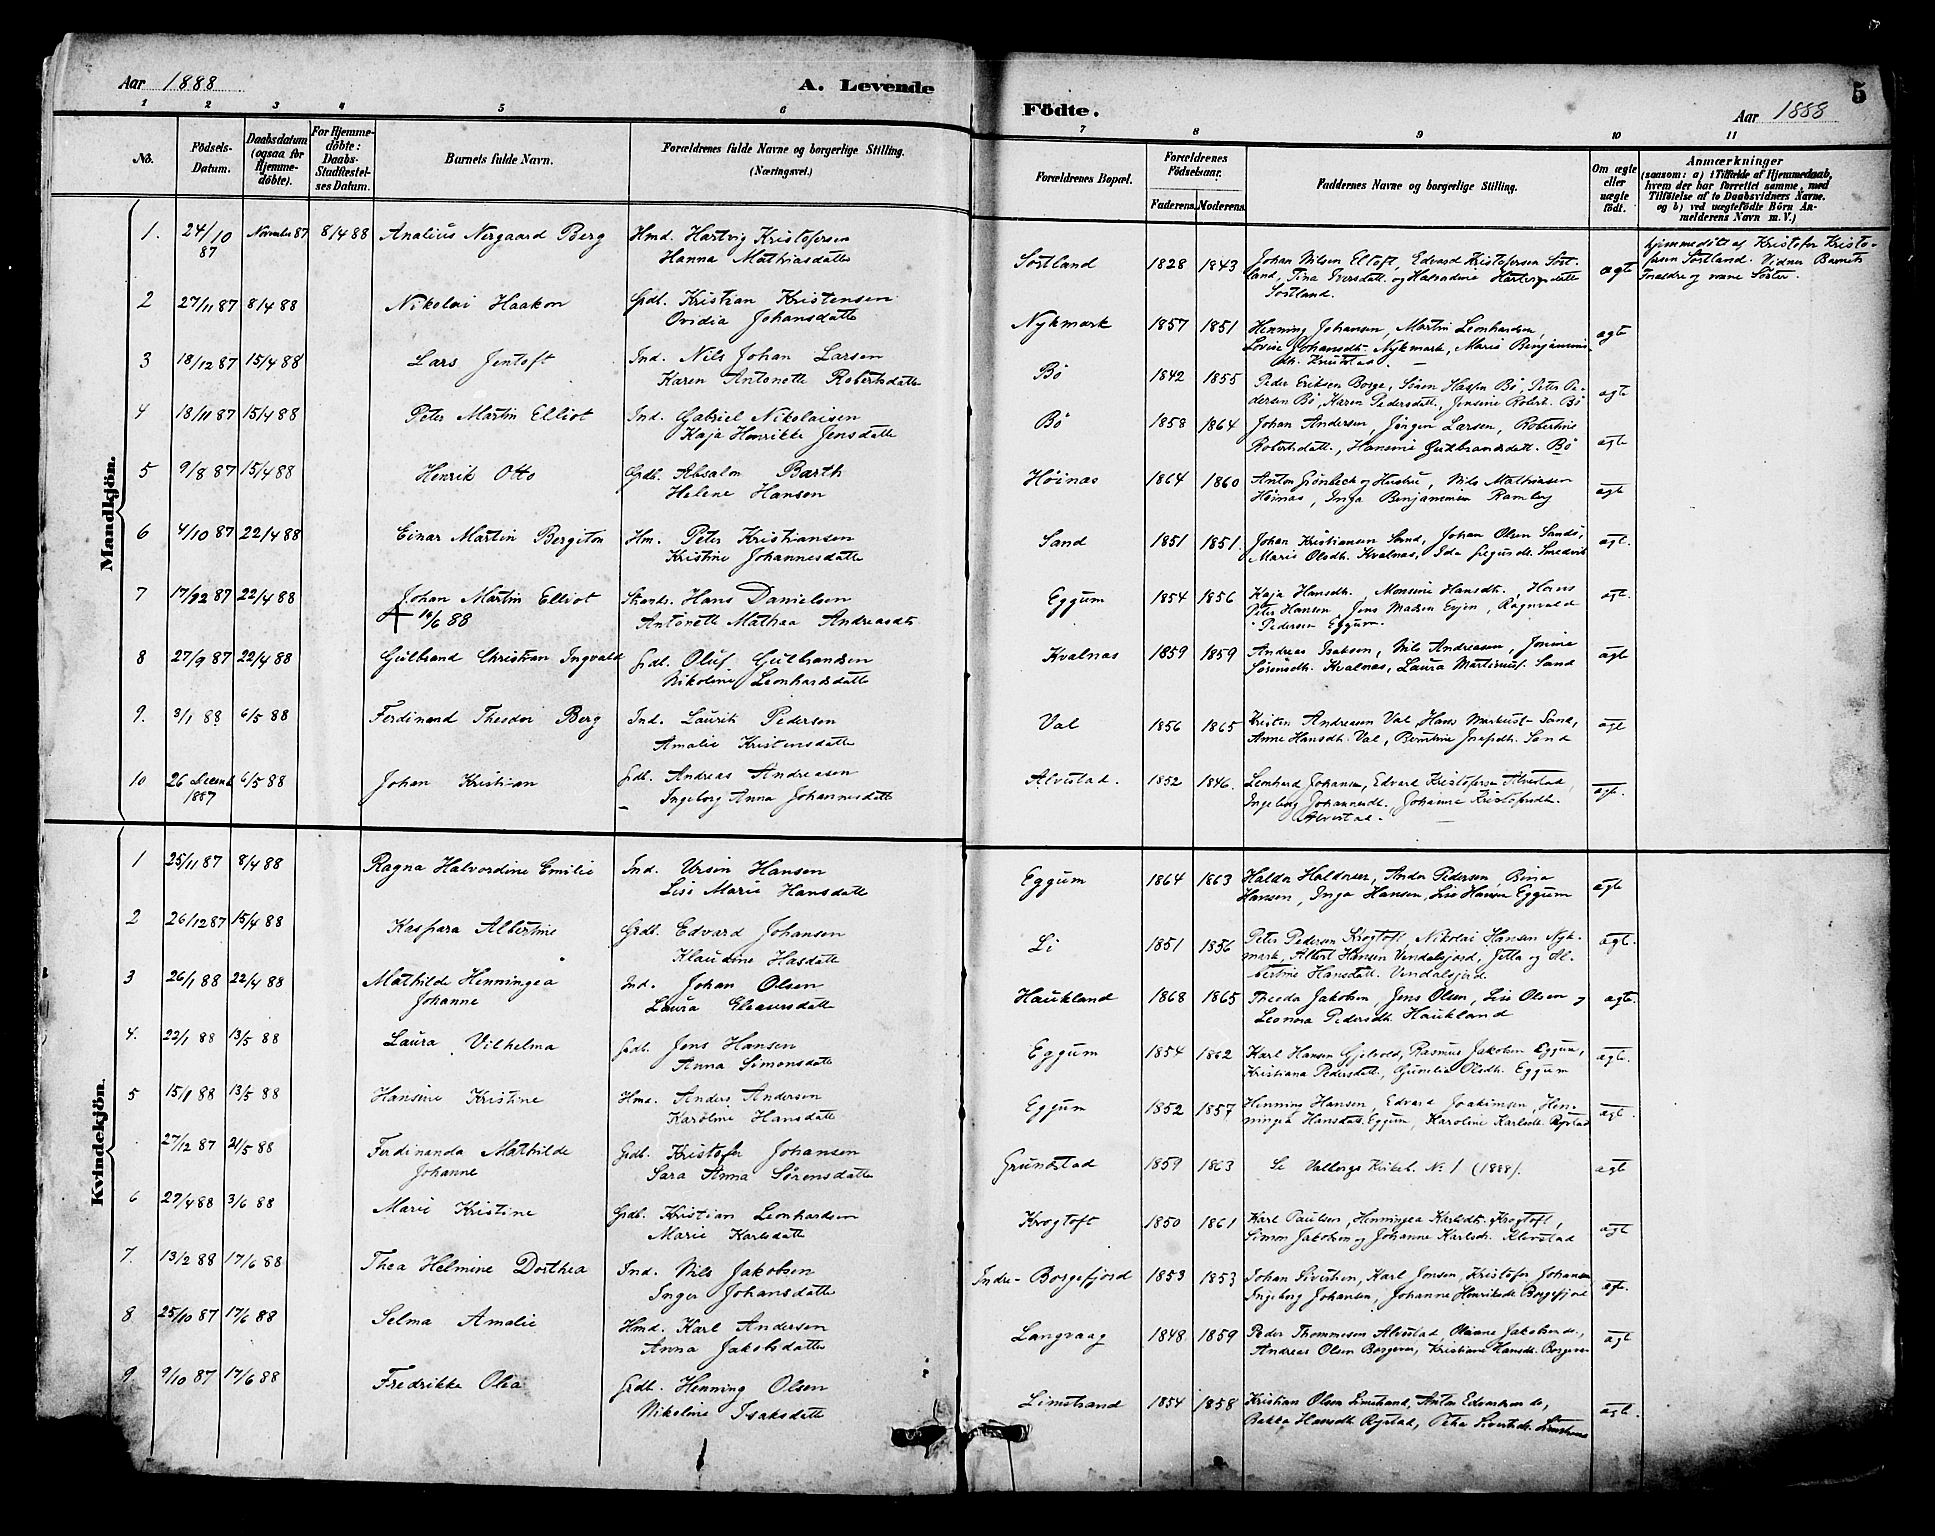 Aar 1888
A. Levende
Födte.
Aar 1888
5
1 2 3 4 5 6 7 8 9 10 11
No.
Födsels-Datum.
Daabsdatum (ogsaa for Hjemme-döbte).
For Hjemme-döbte: Daabs-Stadfæstel-ses Datum.
Barnets fulde Navn.
Forældrenes fulde Navne og borgerlige Stilling. (Næringsvei.)
Forældrenes Bopæl.
Forældrenes Födselsaar. Faderens. Moderens.
Faddernes Navne og borgerlige Stilling.
Om ægte eller uægte födt.
Anmærkninger (saasom: a) i Tilfælde af Hjemmedaab, hvem der har forrettet samme, med Tilföielse af to Daabsvidners Navne, og b) ved uægtefödte Börn An-melderens Navn m. V.)
Mandkjön.
1. 24/10 87 November 87 8/4 88 Analius Nergaard Berg Hmd. Hartvig Kristofersen
Hanna Mathiasdatte Sortland 1828 1843 Johan Nilsen Eltoft, Edvard Kristofersen Sort-
land, Tina Iversdatt. og Hartvigsdatte
Sortland. ægte
hjemmedöbt af Kristofer Kristo-
fersen Sortland. Vidner Barnets
Forældre og Søster.
2 27/11 87 8/4 88 Nikolai Haakon Grdb. Kristian Kristensen
Ovidia Johansdatte Nykmark 1857 1851 Henning Johansen, Martin Leonhardsen,
Lovise Johansdt. Nykmark, Marie Benjamins-
dt. Knutstad. ægte
3 18/12 87 15/4 88 Lars Jentoft Ind. Nils Johan Larsen
Karen Antonette Robertsdatte Bö 1842 1855 Peder Eriksen Borge, Sören Hansen Bö, Peter Pe-
dersen Bö, Karen Pedersdatt., Jensine Robert. Bö ægte
4 18/11 87 15/4 88 Peter Martin Elliot Ind. Gabriel Nikolaisen
Kaja Henrikke Jensdatte Bö 1858 1864 Johan Andersen, Jörgen Larsen, Robertine
Robertsdatt., Hansine Gulbrandsdatt. Bö ægte
5 9/8 87 15/4 88 Henrik Otto Grdb. Absalon Barth
Helene Hansen Höinas 1864 1860 Anton Grönbeck og Hustru, Nils Mathiasen
Höinas, Inga Benjaminsen Ramberg ægte
6 4/10 87 22/4 88 Einar Martin Bergiton Hm. Peter Kristiansen
Kristine Johannesdatte Sand 1851 1851 Johan Kristiansen Sand, Johan Olsen Sand,
Marie Olsdt. Kvalnas, Ida Smedvik ægt.
7 17/12 87 22/4 88 Johan Martin Elliot
+ 16/6 88 Hans Danielsen
Antonette Mathea Andreasdt Eggum 1854 1856 Kaja Hansdt., Monsine Hansdt., Hans
Peter Hansen, Jens Madsen Evjen, Ragnvald
Pedersen Eggum. ægt.
8 27/9 87 22/4 88 Gulbrand Christian Ingvald Grdb. Oluf Gulbrandsen
Nikoline Leonhardsdatte Kvalnas 1859 1859 Andreas Isaksen, Nils Andreasen, Jonine
Sörensdt. Kvalnas, Laura Martinusd. Sand ægt
9. 3/1 88 6/5 88 Ferdinand Theodor Berg Ind. Laurits Pedersen
Amalie Kristensdatte Val 1856 1865 Kristen Andreasen Val, Hans Markus. Sand,
Anne Hansdt. Val, Berntine Josefdt. Sand ægt
10 26 Decemb 1887 6/5 88 Johan Kristian Grdb. Andreas Andreasen
Ingeborg Anna Johannesdatte Alvestad. 1852 1846. Leonhard Johansen, Edvard Kristofersen Alvestad,
Ingeborg Johannesdt., Johanne Kristofersdt.
Alvestad. ægt.
Kvindekjön.
1 25/11 87 8/4 88 Ragna Halvordine Emilie Ind. Ursin Hansen
Lise Marie Hansdatte Eggum 1864 1863 Haldor Haldorsen, Andor Pedersen, Bina
Hansen, Inga Hansen, Lise Hansen Eggum ægte
2 26/12 87 15/4 88 Kaspara Albertine Grdb. Edvard Johansen
Klaudine Hasdatte Li 1851 1856 Peter Pedersen Krogtoft, Nikolai Hansen Nyk-
mark, Albert Hansen Vendalsjord, Jetta og Al-
bertine Hansdatt. Vendalsjord. ægt.
3 26/1 88 22/4 88 Mathilde Henningea
Johanne Ind. Johan Olsen
Laura Eleasersdatte Haukland 1868 1865 Theodor Jakobsen, Jens Olsen, Lise Olsen og
Leonora Pedersdt. Haukland ægt.
4. 22/1 88 13/5 88 Laura Vilhelma Grdb. Jens Hansen
Anna Simonsdatte Eggum 1854 1862 Karl Hansen Gjelvold, Rasmus Jakobsen Eggum,
Kristiana Pedersdatt., Gunelia Olsdt. Eggum ægt.
5 15/1 88 13/5 88 Hansine Kristine Hmd. Anders Andersen
Karoline Hansdatte Eggum 1852 1857 Henning Hansen, Edvard Joakimsen, Hen-
ningea Hansdatt. Eggum, Karoline Karlsdt. Rystad ægt.
27/12 87 21/5 88 Ferdinanda Mathilde
Johanne Grdb. Kristofer Johansen
Sara Anna Sörensdatte Grundstad 1859 1863 Se Valbergs Kirkeb. No 1 (1888). ægt
6 27/4 88 3/6 88 Marie Kristine Grdb. Kristian Leonhardsen
Marie Karlsdatte Krogtoft 1850 1861 Karl Paulsen, Henningea Karlsdt. Krogtoft,
Simon Jakobsen og Johanne Karlsdt. Klevstad ægt
7. 13/2 88 17/6 88 Thea Helmine Dorthea Ind. Nils Jakobsen
Inger Johansdatte Indre-Borgefjord 1853 1853 Johan Sivertsen, Karl Jonsen, Kristofer Johansen
Ingeborg Johansen, Johanne Henriksdt. Borgefjord ægt.
8 25/10 87 17/6 88 Selma Amalie Hmd. Karl Andersen
Anna Jakobsdatte Langvaag 1848 1859 Peder Thommesen Alvestad, Oliane Jakobsen do.,
Andreas Olsen Borgevær, Kristiane Hansdt. Borgevær ægt
9 9/10 87 17/6 88 Fredrikke Olea Grdb. Henning Olsen
Nikoline Isaksdatte Limstrand 1854 1858 Kristian Olsen Limstrand, Anton Edvardsen do.,
Bekka Hansdt. Rystad, Petra Sivertsdt. Limstrand ægt.